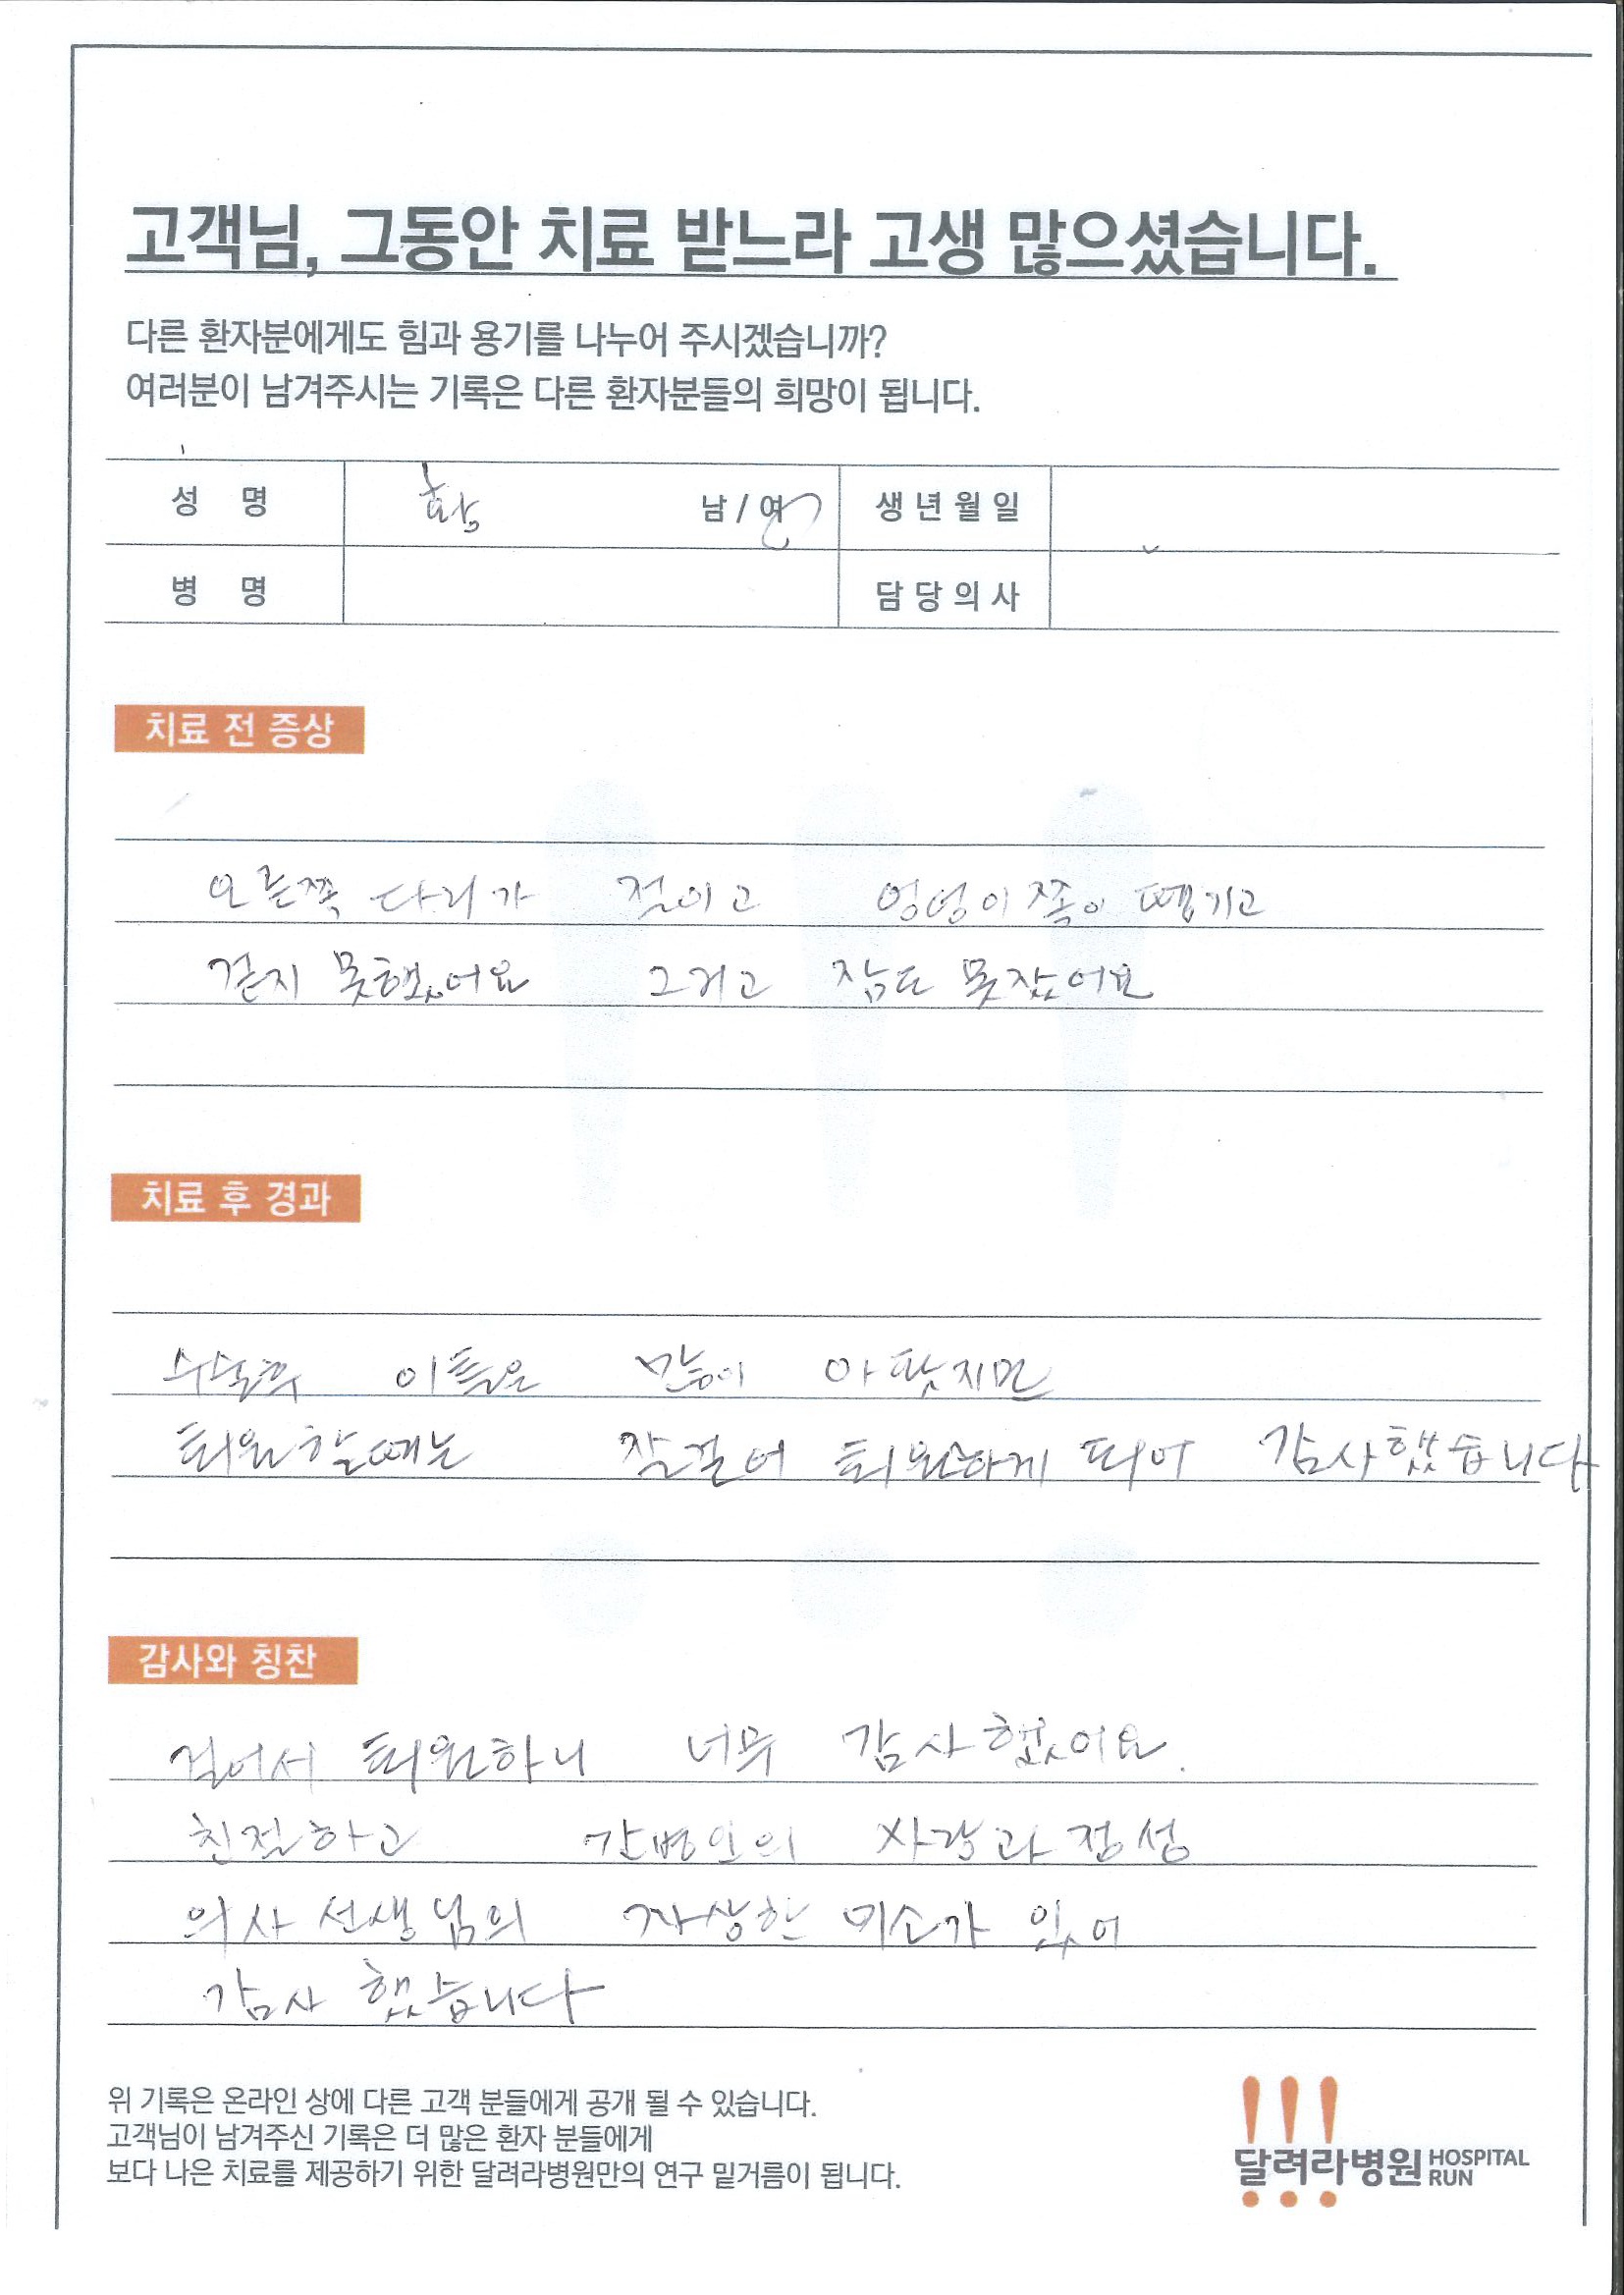 고객님, 그동안 치료 받느라 고생 많으셨습니다.
다른 환자분에게도 힘과 용기를 나누어 주시겠습니까?
여러분이 남겨주시는 기록은 다른 환자분들의 희망이 됩니다.
성 명 황 남 / 여 생년월일
병 명 담당의사
치료 전 증상
오른쪽 다리가 절이고 엉덩이쪽이 땡기고
걷지 못했어요 그리고 잠도 못잤어요
치료 후 경과
수술후 이틀은 많이 아팟지만
퇴원할때는 잘걸어 퇴원하게 되어 감사했습니다
감사와 칭찬
걸어서 퇴원하니 너무 감사했어요.
친절하고 간병인의 사랑과 정성
의사 선생님의 자상한 미소가 있어
감사 했습니다
위 기록은 온라인 상에 다른 고객 분들에게 공개 될 수 있습니다.
고객님이 남겨주신 기록은 더 많은 환자 분들에게
보다 나은 치료를 제공하기 위한 달려라병원만의 연구 밑거름이 됩니다.
달려라병원 HOSPITAL RUN